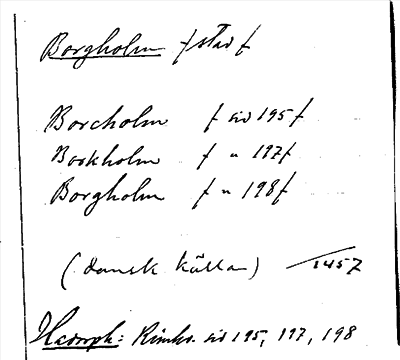 Borgholm /stad/
Borcholm / sid 195/
Borkholm / " 197/
Borgholm / " 198/
(dansk källa) 1457
Hadorph: Rimkr. sid 195, 197, 198